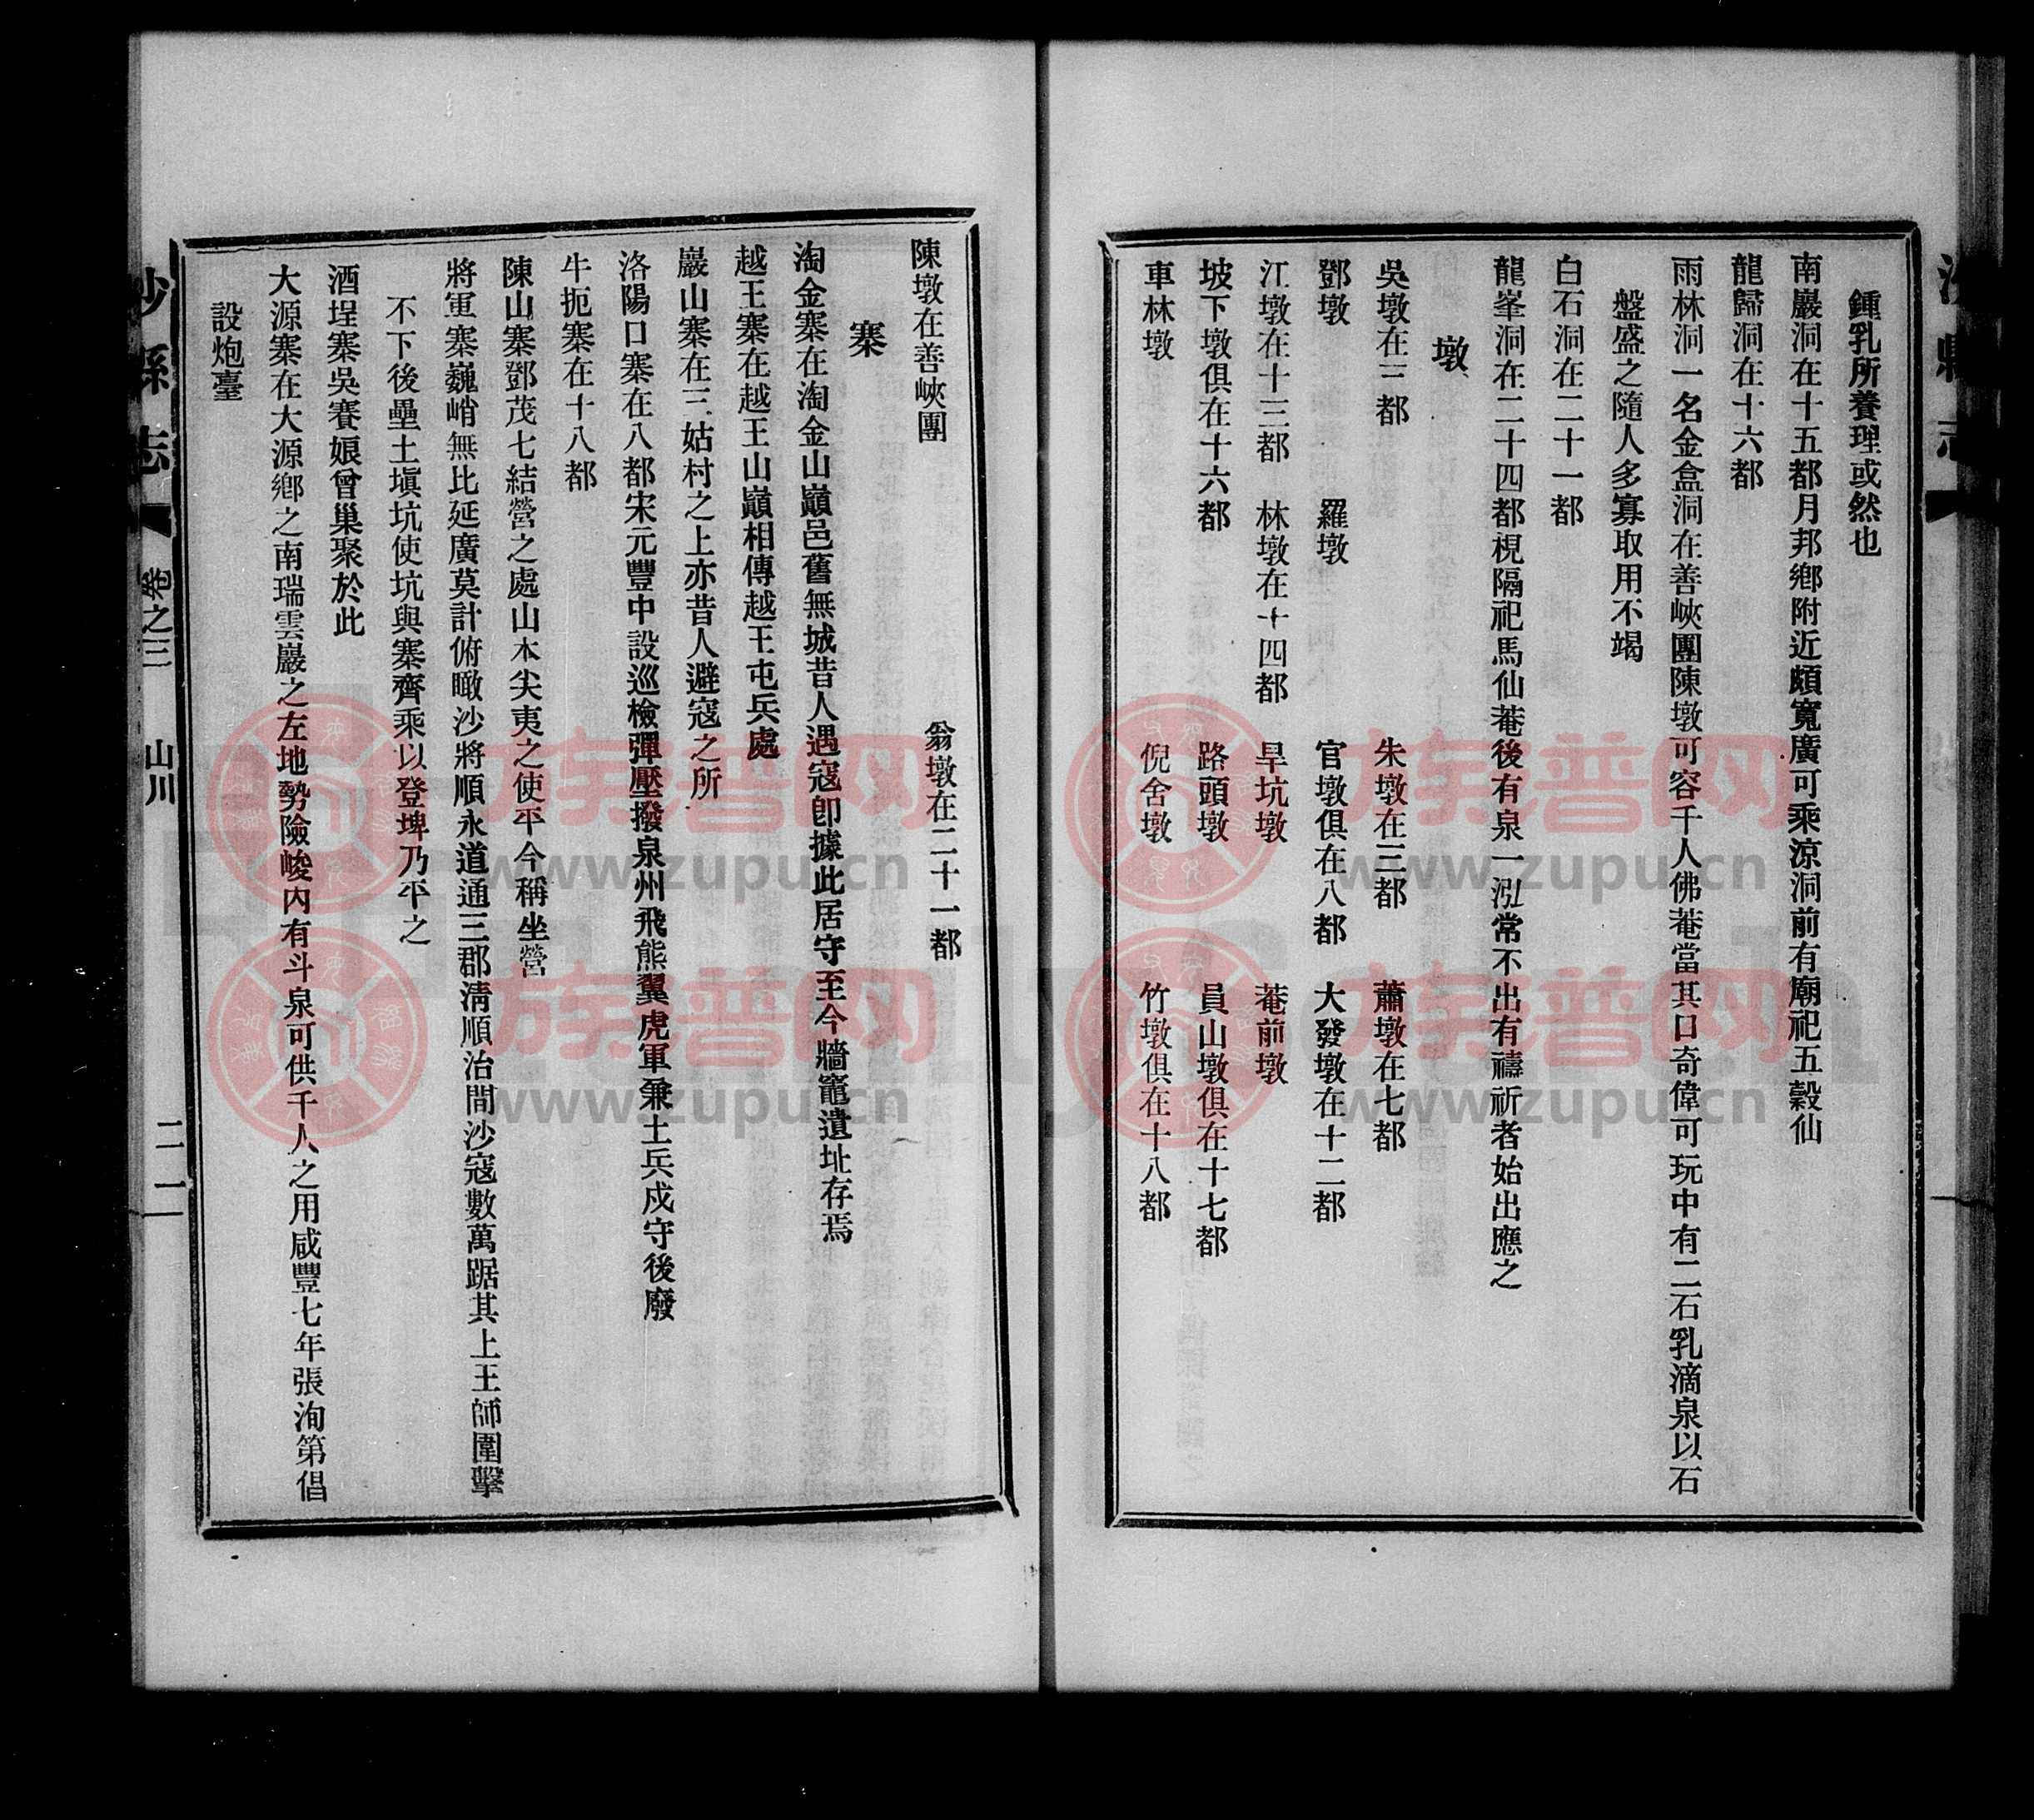 鍾乳所養理或然也
南巖洞在十五都月邦鄉附近頗寬廣可乘涼洞前有廟祀五穀仙
龍歸洞在十六都
雨林洞一名金盒洞在善峽團陳墩可容千人佛菴當其口奇偉可玩中有二石乳滴泉以石
盤盛之隨人多寡取用不竭
白石洞在二十一都
龍峯洞在二十四都梘隔祀馬仙菴後有泉一泓常不出有禱祈者始出應之
墩
吳墩在三都 朱墩在三都 蕭墩在七都
鄧墩 羅墩 官墩俱在八都 大發墩在十二都
江墩在十三都 林墩在十四都 旱坑墩 菴前墩
坡下墩俱在十六都 路頭墩 員山墩俱在十七都
車林墩 倪舍墩 竹墩俱在十八都
陳墩在善峽團 翁墩在二十一都
寨
淘金寨在淘金山巔邑舊無城昔人遇寇卽據此居守至今牆竈遺址存焉
越王寨在越王山巔相傳越王屯兵處
巖山寨在三姑村之上亦昔人避寇之所
洛陽口寨在八都宋元豐中設巡檢彈壓撥泉州飛熊翼虎軍兼土兵戍守後廢
牛扼寨在十八都
陳山寨鄧茂七結營之處山本尖夷之使平今稱坐營
將軍寨巍峭無比延廣莫計俯瞰沙將順永道通三郡清順治間沙寇數萬踞其上王師圍擊
不下後壘土塡坑使坑與寨齊乘以登埤乃平之
酒埕寨吳賽娘曾巢聚於此
大源寨在大源鄉之南瑞雲巖之左地勢險峻內有斗泉可供千人之用咸豐七年張洵第倡
設炮臺
沙縣志
卷之三 山川 二一
族普网
www.zupu.cn
族普网
www.zupu.cn
族普网
www.zupu.cn
族普网
www.zupu.cn